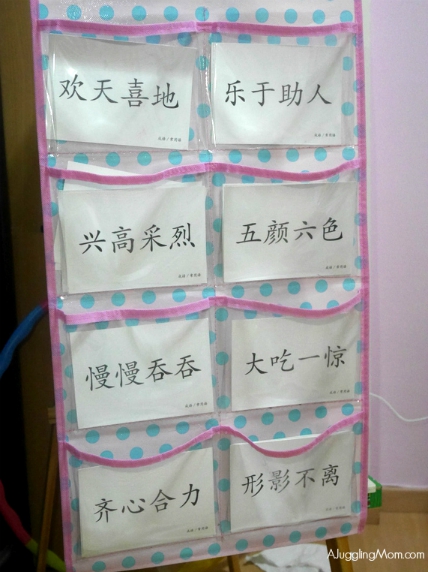 欢天喜地
乐于助人
兴高采烈
五颜六色
慢慢吞吞
大吃一惊
齐心合力
形影不离
AJugglingMom.com